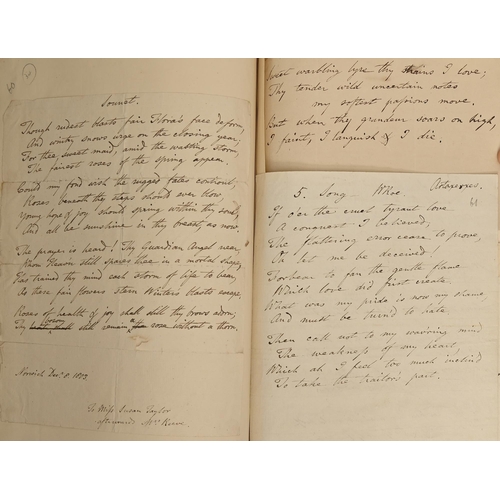 Sonnet.
Though rudest blasts fair Flora's face deform,
And wintry snows urge on the closing year,
For thee, sweet maid, amid the wasting storm
The fairest roses of the spring appear.
Could my fond wish the rugged fates controul,
Roses beneath thy steps should ever blow
Young hope & joy should spring within thy soul,
And all be sunshine in thy breast, as now
The prayer is heard! Thy Guardian Angel near,
Know Heaven still spares thee in a mortal shape,
Has trained thy mind each storm of life to bear,
As these fair flowers stern Winters blasts escape,
Roses of health & joy shall still thy brows adorn,
Thy bosom still remain a rose without a thorn.
Norwich Dec. 8. 1873.
To Miss Susan Taylor
afterwards Mrs. Reeve.
Sweet warbling lyre thy strains I love;
Thy tender wild uncertain notes
my softest passions move,
But when thy grandeur soars on high,
I faint, I languish & I die.
5. Song Artaxerxes.
61
If o'er the cruel tyrant love
A conquest I believed,
The flattering error cease to prove,
O! let me be deceived!
Forbear to fan the gentle flame
Which love did first create,
What was my pride is now my shame
And must be turn'd to hate.
Then call not to my wav'ring mind
The weakness of my heart,
Which ah I feel too much inclin'd
To take the traitor's part.